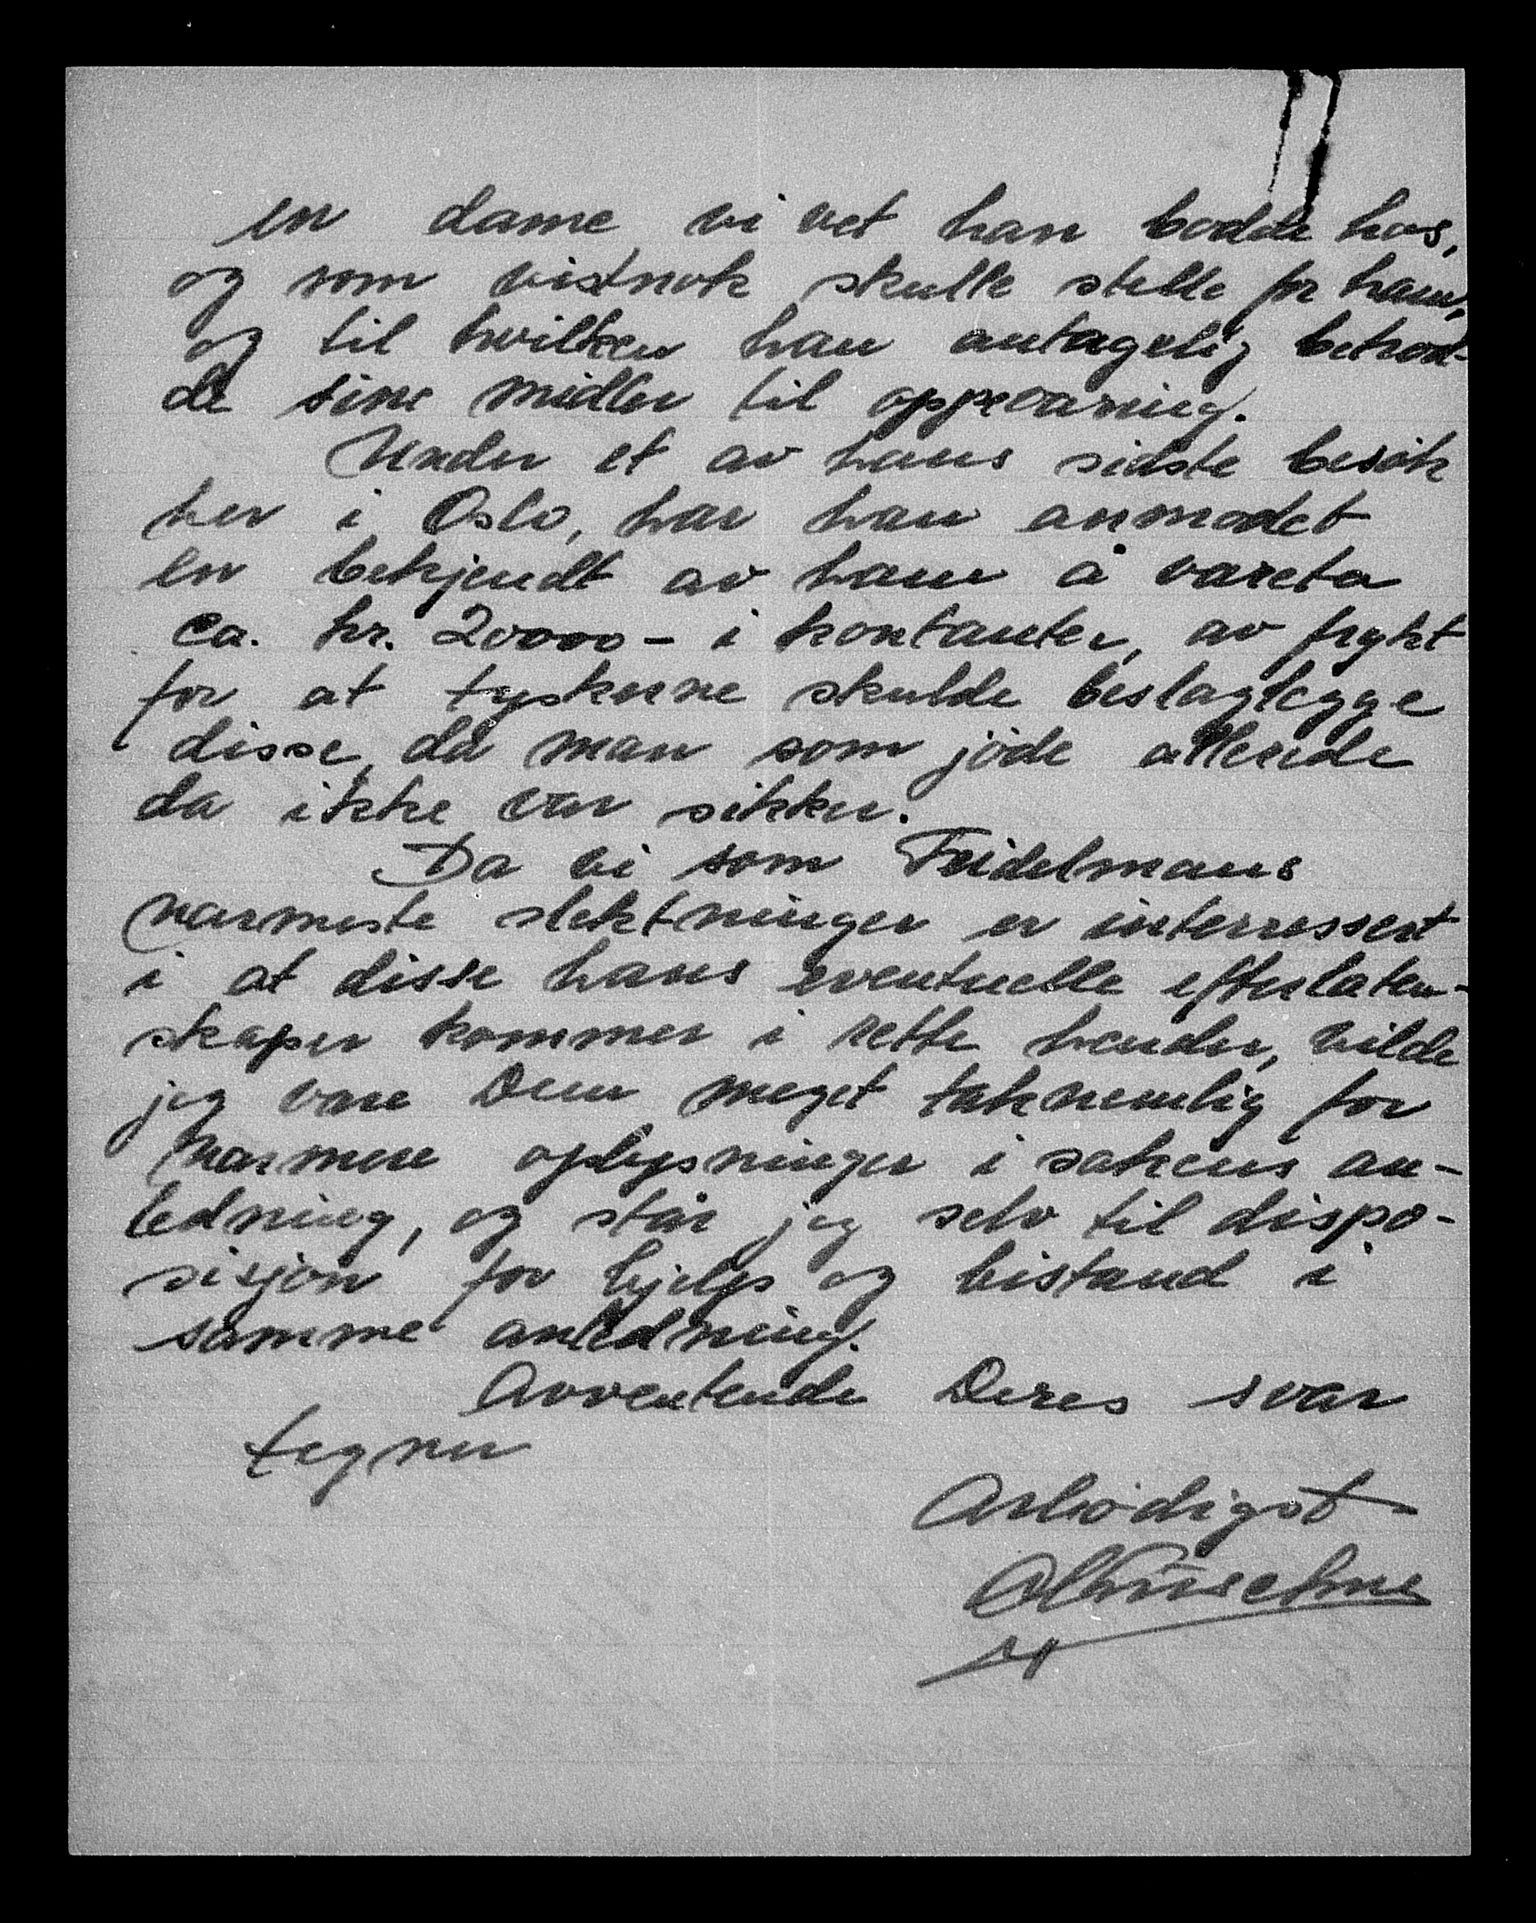 en dame vi vet han bodde hos,
og som vistnok skulle stelle for ham,
og til hvilken han antagelig betrod-
de sine midler til oppevaring.
Under et av hans sidste besøk
her i Oslo, har han anmodet
en bekjendt av ham å vareta
ca. kr. 20000 - i kontanter, av frykt
for at tyskerne skulde beslaglegge
disse, da man som jøde allerede
da ikke var sikker.
Da vi som Feidelmans
nærmeste slektninger er interressert
i at disse hans eventuelle efterlaten-
skaper kommer i rette hender, vilde
jeg være Dem meget taknemlig for
nærmere oplysninger i sakens an-
ledning, og står jeg selv til dispo-
sisjon for hjelp og bistand i
samme anledning.
Avventende Deres svar
tegner
Ærbødigst